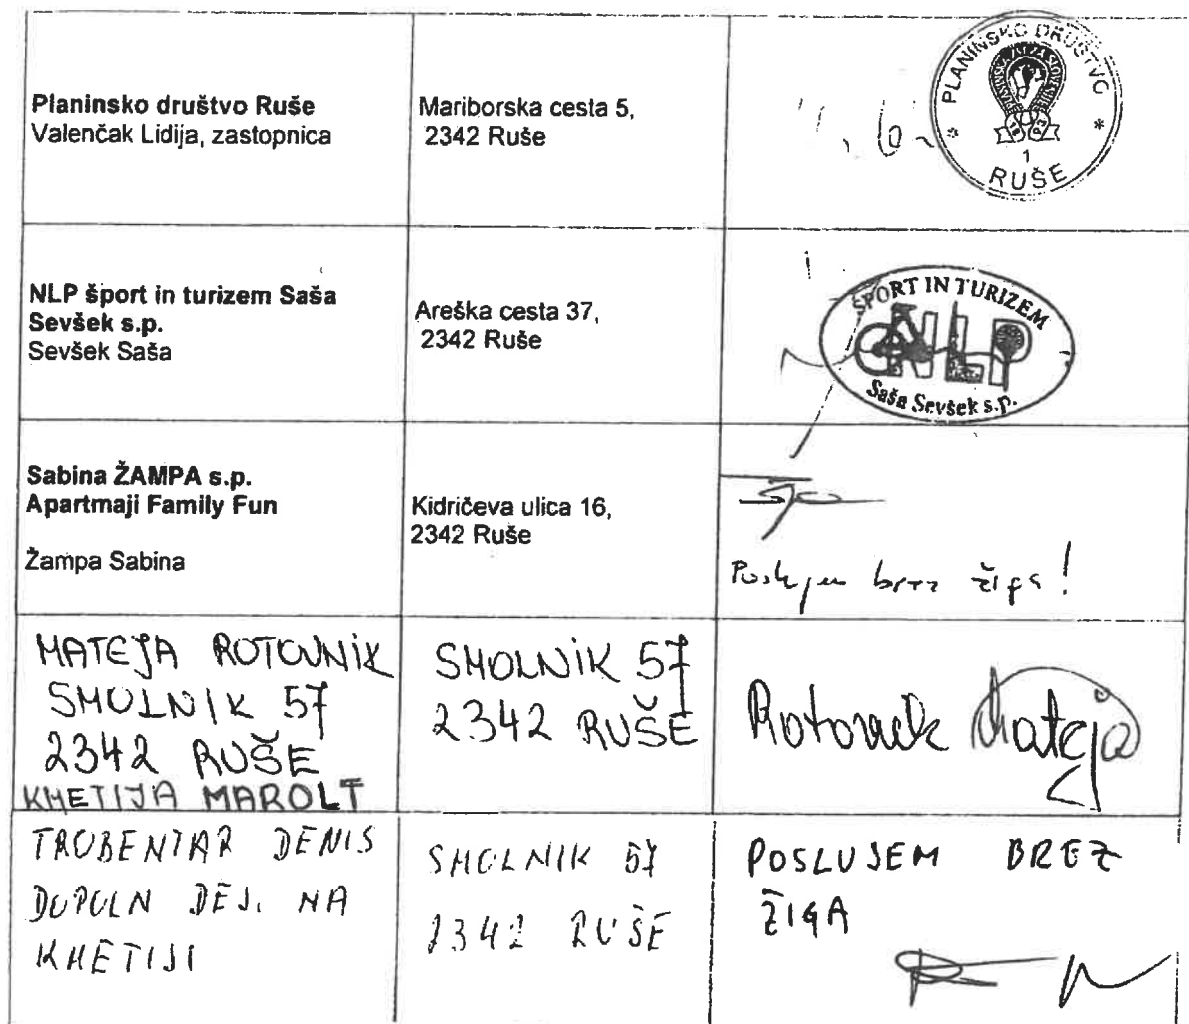 Planinsko društvo Ruše
Valenčak Lidija, zastopnica
Mariborska cesta 5,
2342 Ruše
PLANINSKO DRUŠTVO
* *
1
RUŠE
NLP šport in turizem Saša
Sevšek s.p.
Sevšek Saša
Areška cesta 37,
2342 Ruše
ŠPORT IN TURIZEM
NLP
Saša Sevšek s.p.
Sabina ŽAMPA s.p.
Apartmaji Family Fun
Žampa Sabina
Kidričeva ulica 16,
2342 Ruše
brez žiga!
MATEJA ROTOVNIK
SMOLNIK 57
2342 RUŠE
KMETIJA MAROLT
SMOLNIK 57
2342 RUŠE
Rotovnik Mateja
TROBENTAR DENIS
DOPOLN DEJ. NA
KMETIJI
SMOLNIK 57
2342 RUŠE
POSLUJEM BREZ
ŽIGA